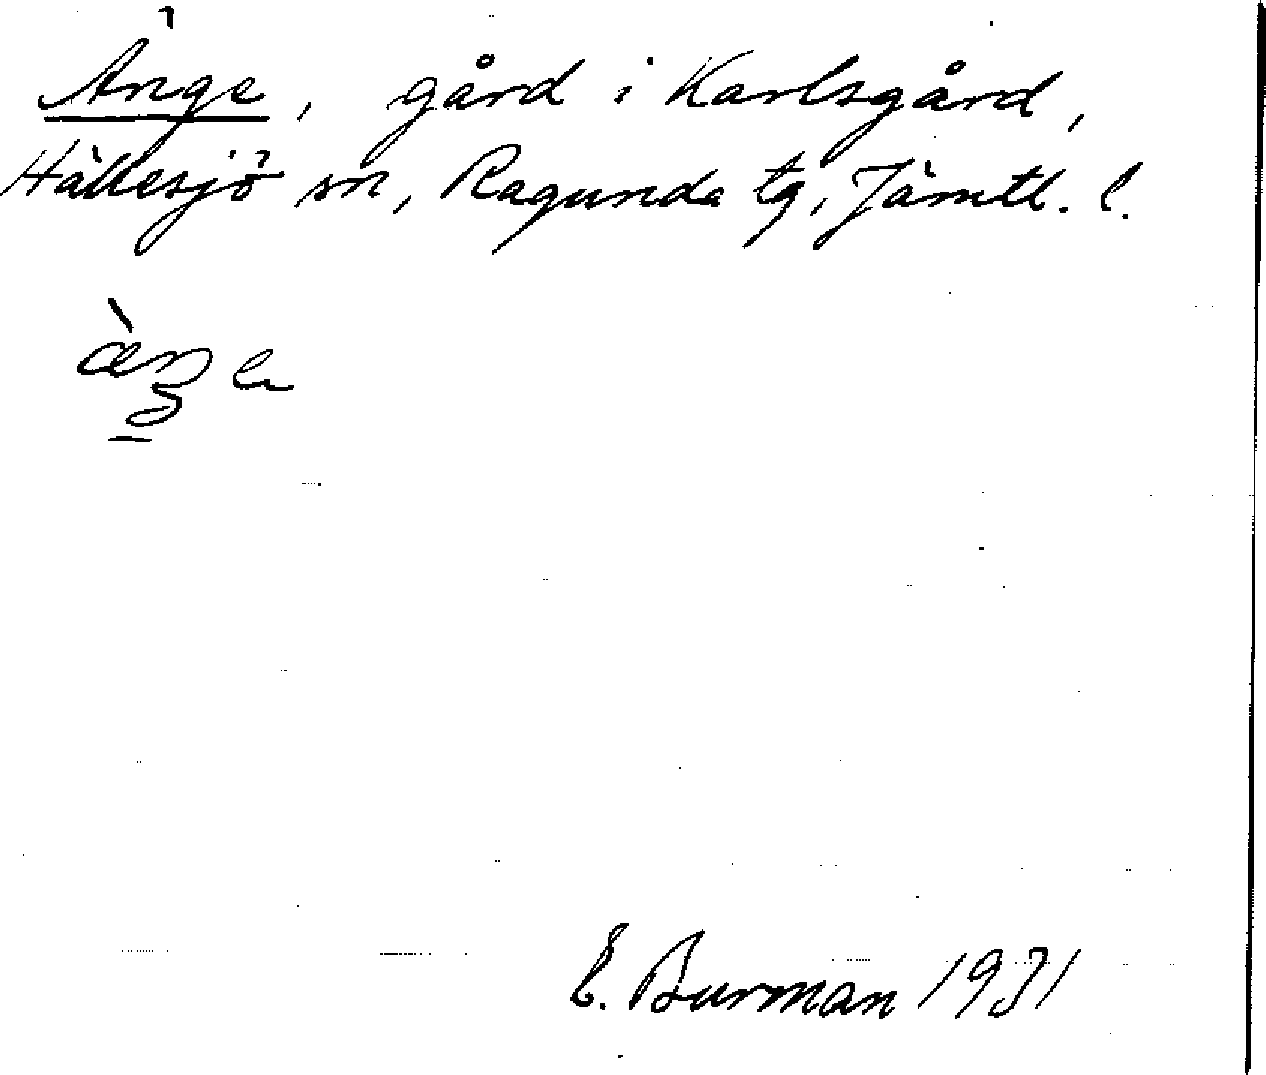 Änge, gård i Karlsgård,
Hällesjö sn, Ragunda tg, Jämtl. l.
E. Burman 1931